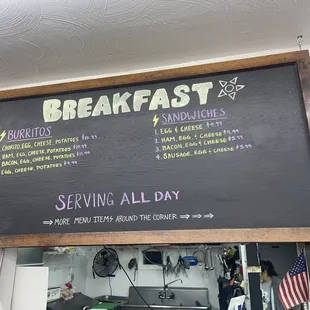 BREAKFAST
BURRITOS
CHORIZO, EGG, CHEESE, POTATOES
HAM, EGG, CHEESE, POTATOES
BACON, EGG, CHEESE, POTATOES
EGG, CHEESE, POTATOES
SANDWICHES
1. EGG & CHEESE
2. HAM, EGG, & CHEESE
3. BACON, EGG & CHEESE
4. SAUSAGE, EGG & CHEESE
SERVING ALL DAY
MORE MENU ITEMS AROUND THE CORNER